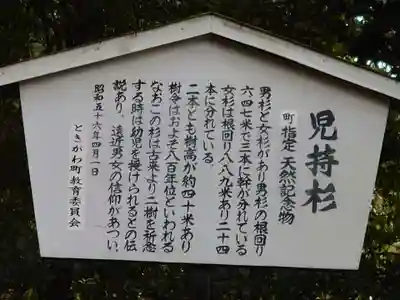 児持杉
町指定 天然記念物
男杉と女杉があり男杉の根回り
六・四七米で三本に幹が分れている
女杉は根回り八・八九米あり二十四
本に分れている
二本とも樹高が約四十米あり
樹令はおよそ八百年位といわれる
なおこの杉は古来より二樹を祈念
する時は幼児を授けられるとの伝
説あり、遠近男女の信仰があつい、
昭和五十六年四月一日
ときがわ町教育委員会